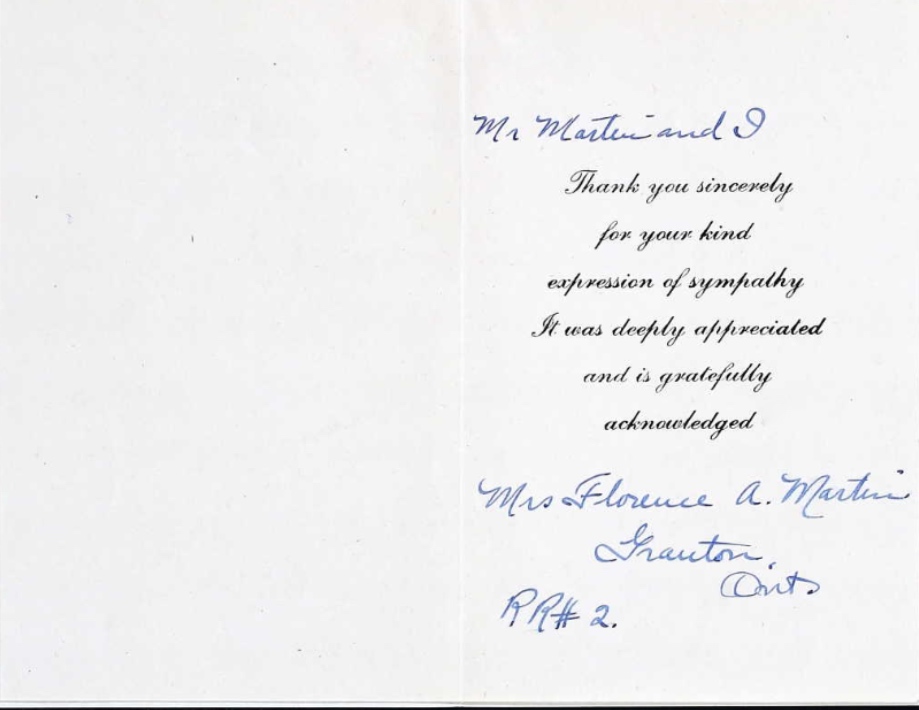 Mr Martin and I
Thank you sincerely
for your kind
expression of sympathy
It was deeply appreciated
and is gratefully
acknowledged
Mrs Florence A. Martin
Granton,
Ont.
RR# 2.